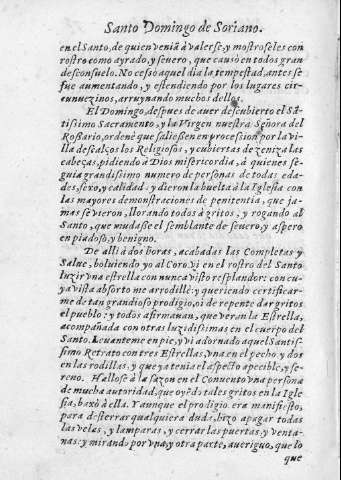 Santo Domingo de Soriano.
en el Santo, de quien veniã à valerse: y mostroseles con
rostro como ayrado, y seuero, que causò en todos gran
desconsuelo. No cessò aquel dia la tempestad, antes se
fue aumentando, y estendiendo por los lugares cir-
cunuezinos, arruynando muchos dellos.
El Domingo, despues de auer descubierto el Sã-
tissimo Sacramento, y la Virgen nuestra Señora del
Rosario, ordenè que saliessen en procession por la vi-
lla descalços los Religiosos, y cubiertas de zeniza las
cabeças, pidiendo à Dios misericordia, à quienes se-
guia grandissimo numero de personas de todas eda-
des, sexo, y calidad: y dieron la buelta à la Iglesia con
las mayores demonstraciones de penitentia, que ja-
mas se vieron, llorando todos à gritos, y rogando al
Santo, que mudasse el semblante de seuero, y aspero
en piadoso, y benigno.
De alli à dos horas, acabadas las Completas y
Salue, boluiendo yo al Coro, vi en el rostro del Santo
luzir vna estrella con nunca visto resplandor: con cu-
ya vista absorto me arrodillè: y queriendo certificar-
me de tan grandioso prodigio, oi de repente dar gritos
el pueblo: y todos afirmauan, que veran la Estrella,
acompañada con otras luzidissimas en el cuerpo del
Santo. Leuanteme en pie, y vi adornado aquel Santis-
simo Retrato con tres Estrellas, vna en el pecho, y dos
en las rodillas, y que ya tenia el aspecto apecible, y se-
reno. Hallose à la sazon en el Conuento vna persona
de mucha autoridad, que oyẽdo tales gritos en la Igle-
sia, baxò à ella. Y aunque el prodigio era manifiesto,
para desterrar qualquiera duda, hizo apagar todas
las velas, y lamparas, y cerrar las puertas, y venta-
nas: y mirando por vna, y otra parte, aueriguò, que lo
que